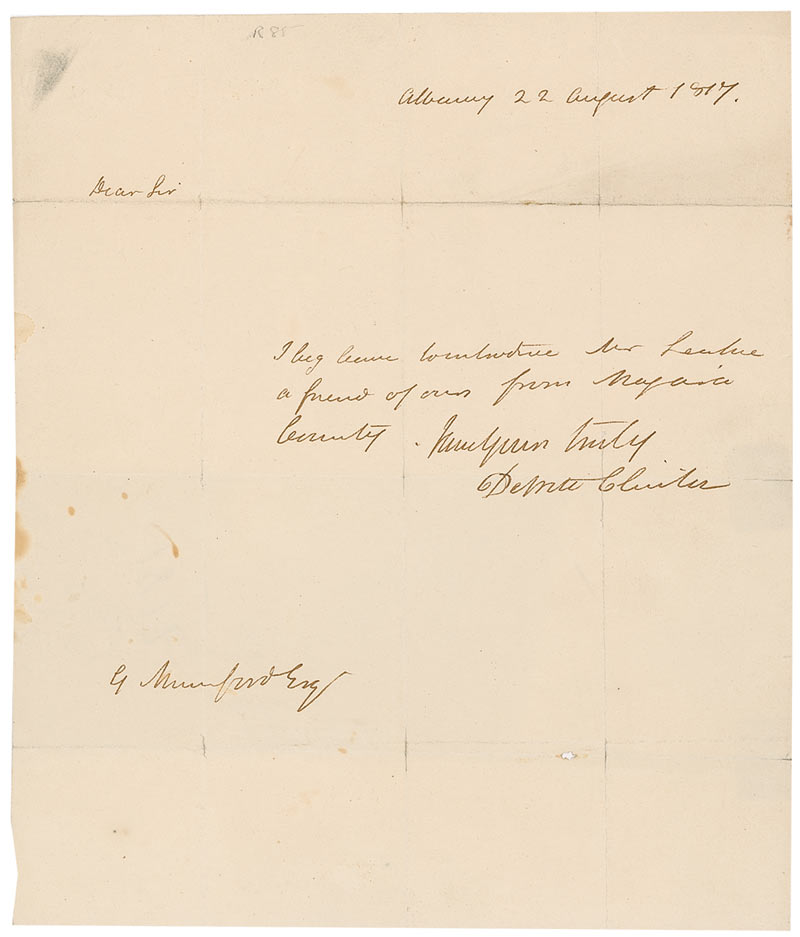 R 85
Albany 22 August 1817.
Dear Sir
I beg leave to introduce Mr
a friend of ours from Niagara
County. I am Yours truly
DeWitt Clinton
G Mumford Esqr